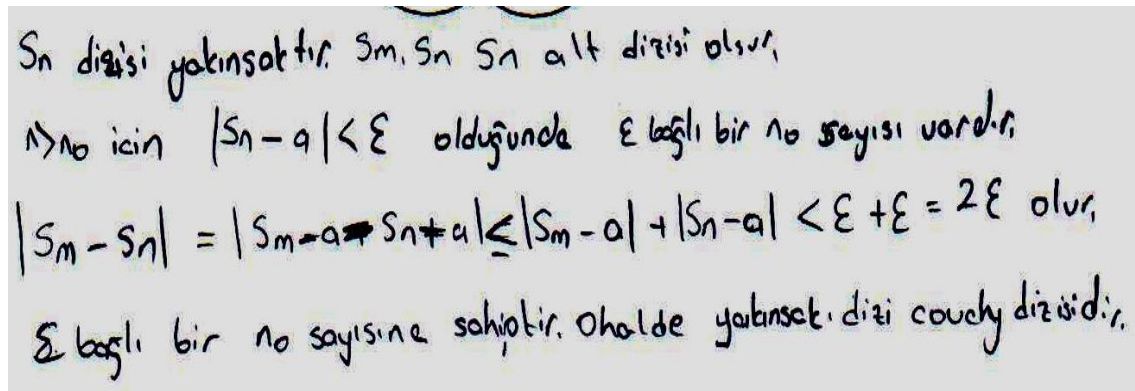 Sn dizisi yakınsaktır. Sm, Sn Sn alt dizisi olsur,
n>no icin |Sn - a| < ε olduğunda ε bağlı bir no sayısı vardır,
|Sm - Sn| = |Sm - a - Sn + a| ≤ |Sm - a| + |Sn - a| < ε + ε = 2ε olur,
ε bağlı bir no sayısına sahiptir. Ohalde yakınsak. dizi couchy dizisidir.